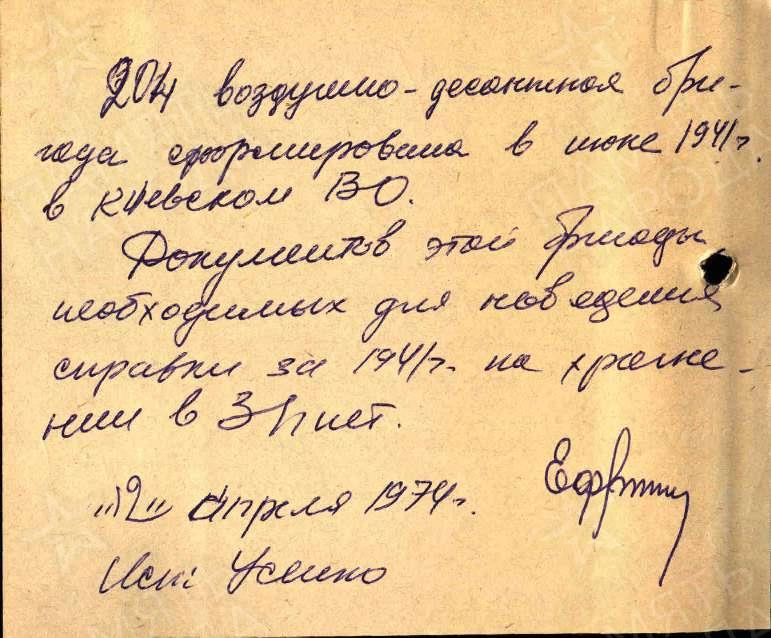 204 воздушно-десантная бри-
гада сформирована в июне 1941г.
в Киевском ВО.
Документов этой бригады
необходимых для наведения
справки за 1941г. на хране-
нии в ЗА нет.
"12" апреля 1974г.
Исп. Усенко